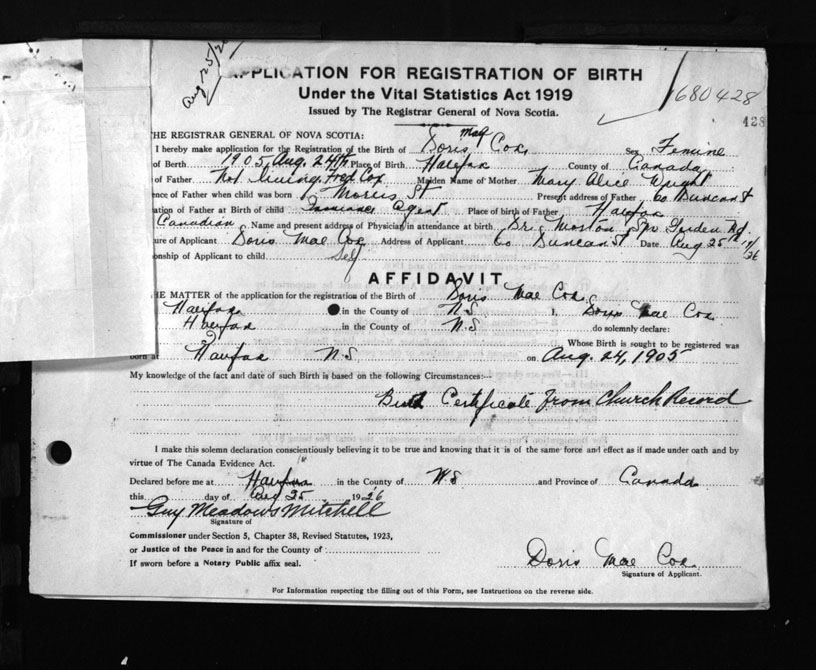 Aug 25/26
APPLICATION FOR REGISTRATION OF BIRTH
Under the Vital Statistics Act 1919
Issued by The Registrar General of Nova Scotia.
680428
428
THE REGISTRAR GENERAL OF NOVA SCOTIA:
I hereby make application for the Registration of the Birth of Doris Mae Cox Sex Femine
of Birth 1905, Aug. 24th Place of Birth Halifax County of Canada
of Father Not living, Fred Cox Maiden Name of Mother Mary Alice Wright
ence of Father when child was born Morris St Present address of Father 60 Duncan St
ation of Father at Birth of child Insurance Agent Place of birth of Father Halifax
Canadian Name and present address of Physician in attendance at birth Dr. Morton Spr Garden Rd.
ure of Applicant Doris Mae Cox Address of Applicant 60 Duncan St Date Aug 25th/26
onship of Applicant to child Self
AFFIDAVIT
THE MATTER of the application for the registration of the Birth of Doris Mae Cox
Halifax in the County of N.S I, Doris Mae Cox
Halifax in the County of N.S do solemnly declare:
Whose Birth is sought to be registered was
born at Halifax N.S on Aug. 24, 1905
My knowledge of the fact and date of such Birth is based on the following Circumstances:—
Birth Certificate from Church Record
I make this solemn declaration conscientiously believing it to be true and knowing that it is of the same force and effect as if made under oath and by
virtue of The Canada Evidence Act.
Declared before me at Halifax in the County of N.S and Province of Canada
this day of Aug 25 1926
Guy Meadows Mitchell
Signature of
Commissioner under Section 5, Chapter 38, Revised Statutes, 1923,
or Justice of the Peace in and for the County of :
If sworn before a Notary Public affix seal.
Doris Mae Cox
Signature of Applicant.
For Information respecting the filling out of this Form, see Instructions on the reverse side.